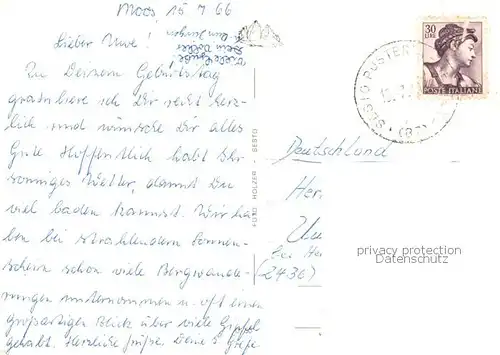 Moos, 15 7 66
Lieber Uwe!
Zu Deinem Geburtstag
gratuliere ich Dir recht herz-
lich und wünsche Dir alles
Gute. Hoffentlich habt Ihr
sonniges Wetter, damit Du
viel baden kannst. Wir ha
ben bei strahlendem Sonnen-
schein schon viele Bergwande-
rungen unternommen u. oft einen
großartigen Blick über viele Gipfel
gehabt. Herzliche Grüße. Deine
FOTO HOLZER - SESTO
30
LIRE
POSTE ITALIANE
SESTO PUSTER
(BZ)
Deutschland
Her
bei Her
(2436)
privacy protection
Datenschutz